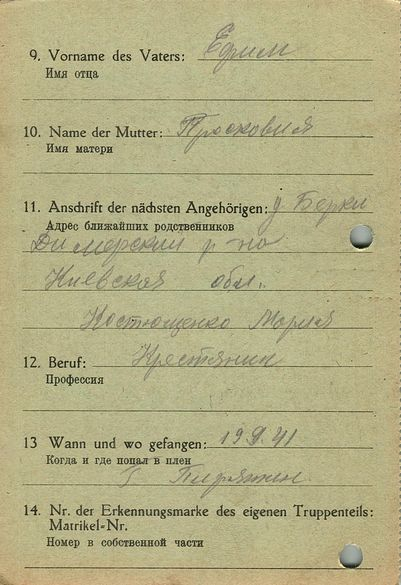 9. Vorname des Vaters: Ефим
Имя отца
10. Name der Mutter: Просковия
Имя матери
11. Anschrift der nächsten Angehörigen: д Берки
Адрес ближайших родственников
Димерский р-на
Киевская обл.
Костющенко Мария
12. Beruf: Крестянин
Профессия
13 Wann und wo gefangen: 19.9.41
Когда и где попал в плен
Пирятин
14. Nr. der Erkennungsmarke des eigenen Truppenteils:
Matrikel-Nr.
Номер в собственной части